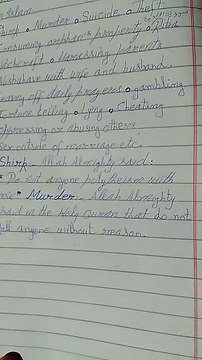 in Islam
Shirk • Murder • Suicide • Theft
Consuming orphan's property • Riba
Witchcraft • Harassing parents
Misbehave with wife and husband.
Leaving off daily prayers • gambling
Fortune telling • Lying • Cheating
Oppressing or abusing others
Sex outside of marriage etc.
Shirk - Allah Almighty said:
"Do not anyone polytheism with
me" Murder - Allah Almighty
said in the Holy Quran that do not
kill anyone without reason.